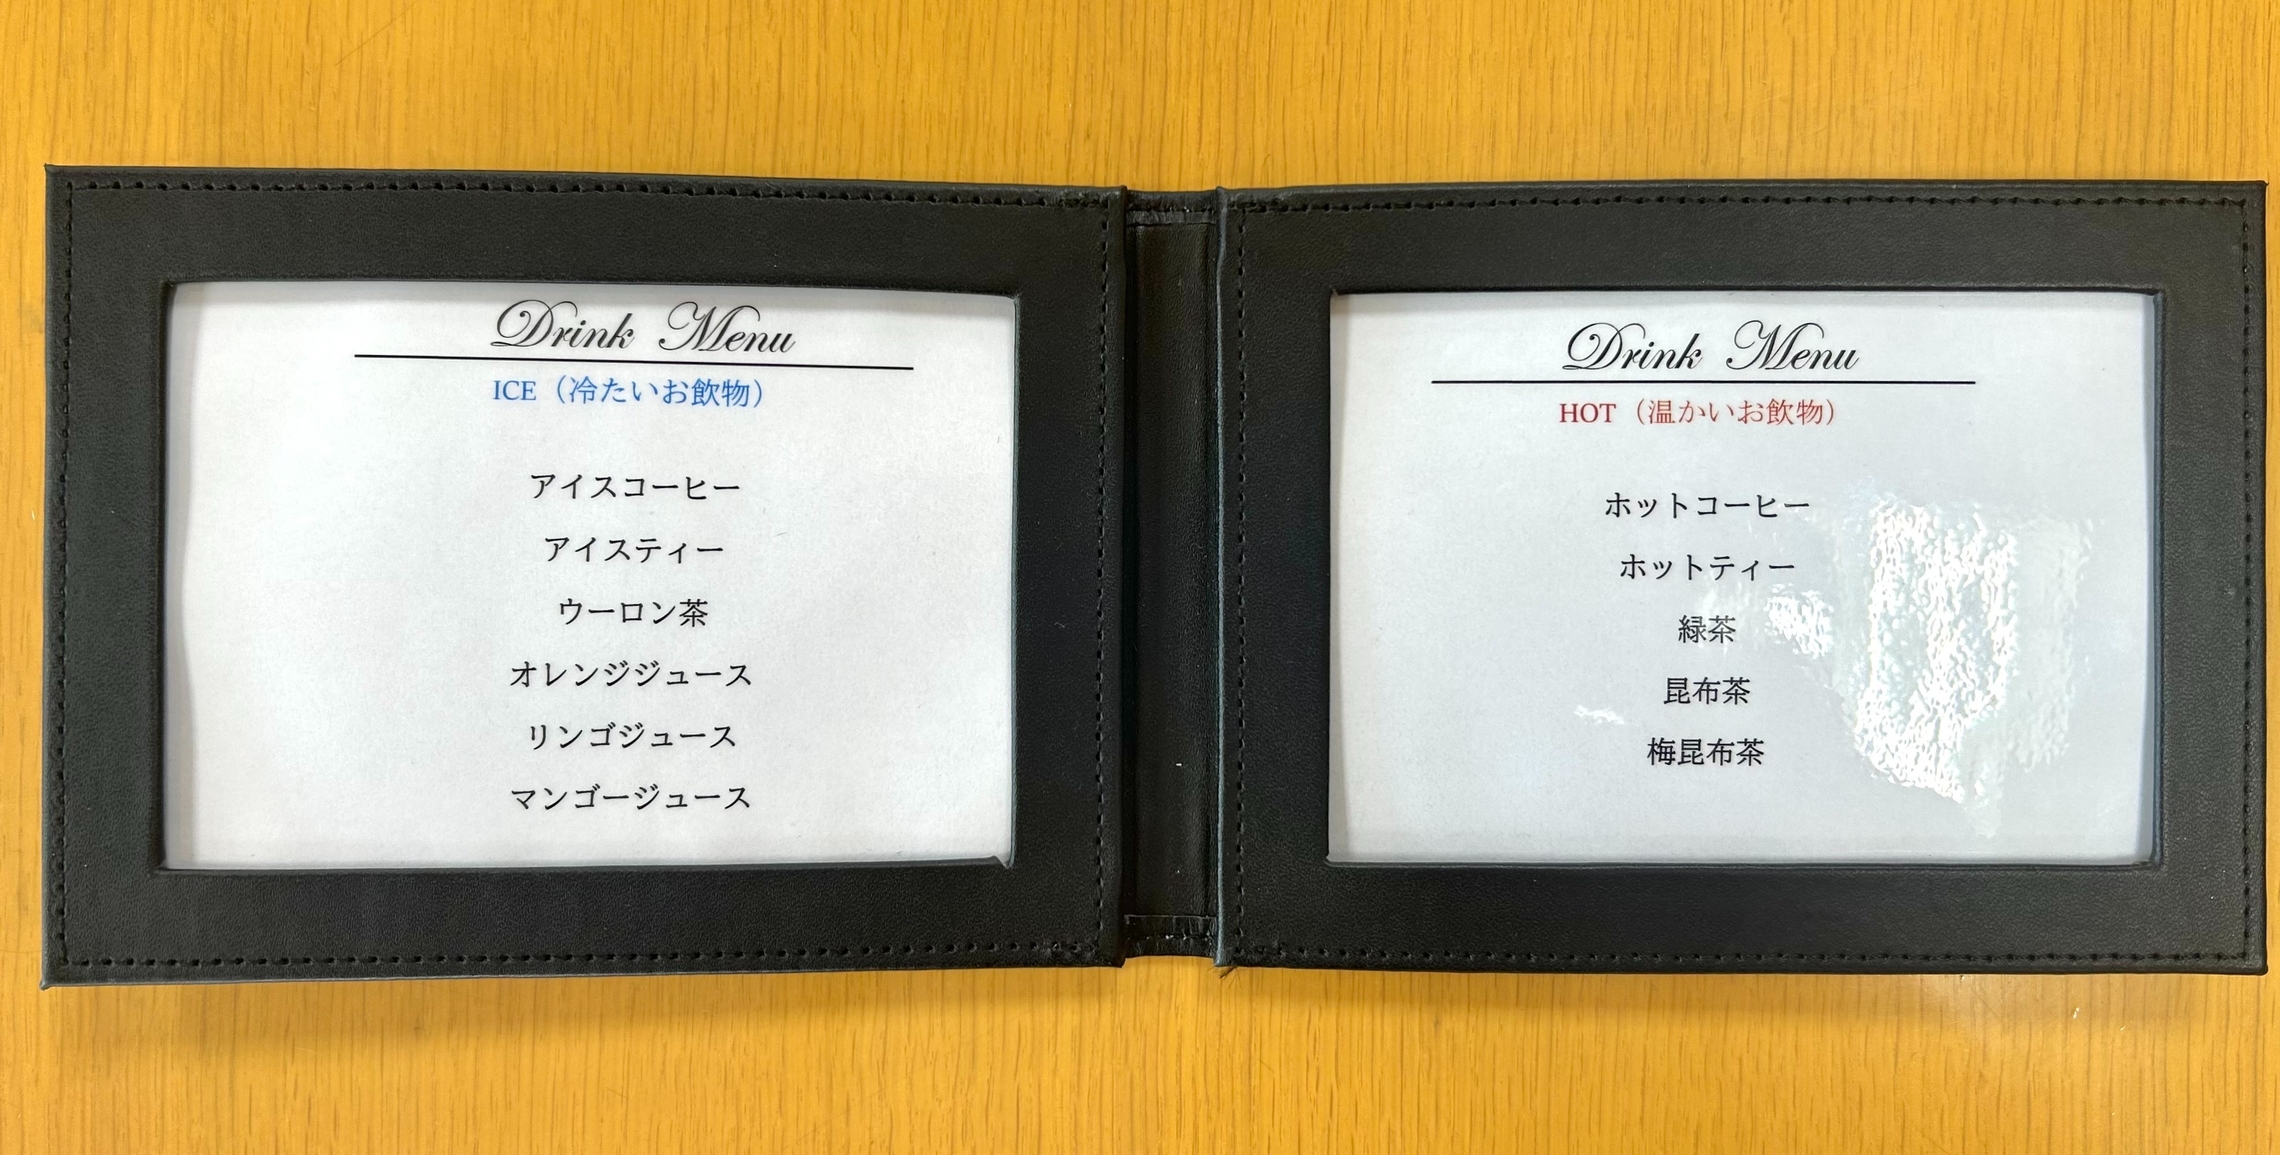 Drink Menu
ICE（冷たいお飲物）
アイスコーヒー
アイスティー
ウーロン茶
オレンジジュース
リンゴジュース
マンゴージュース
Drink Menu
HOT（温かいお飲物）
ホットコーヒー
ホットティー
緑茶
昆布茶
梅昆布茶